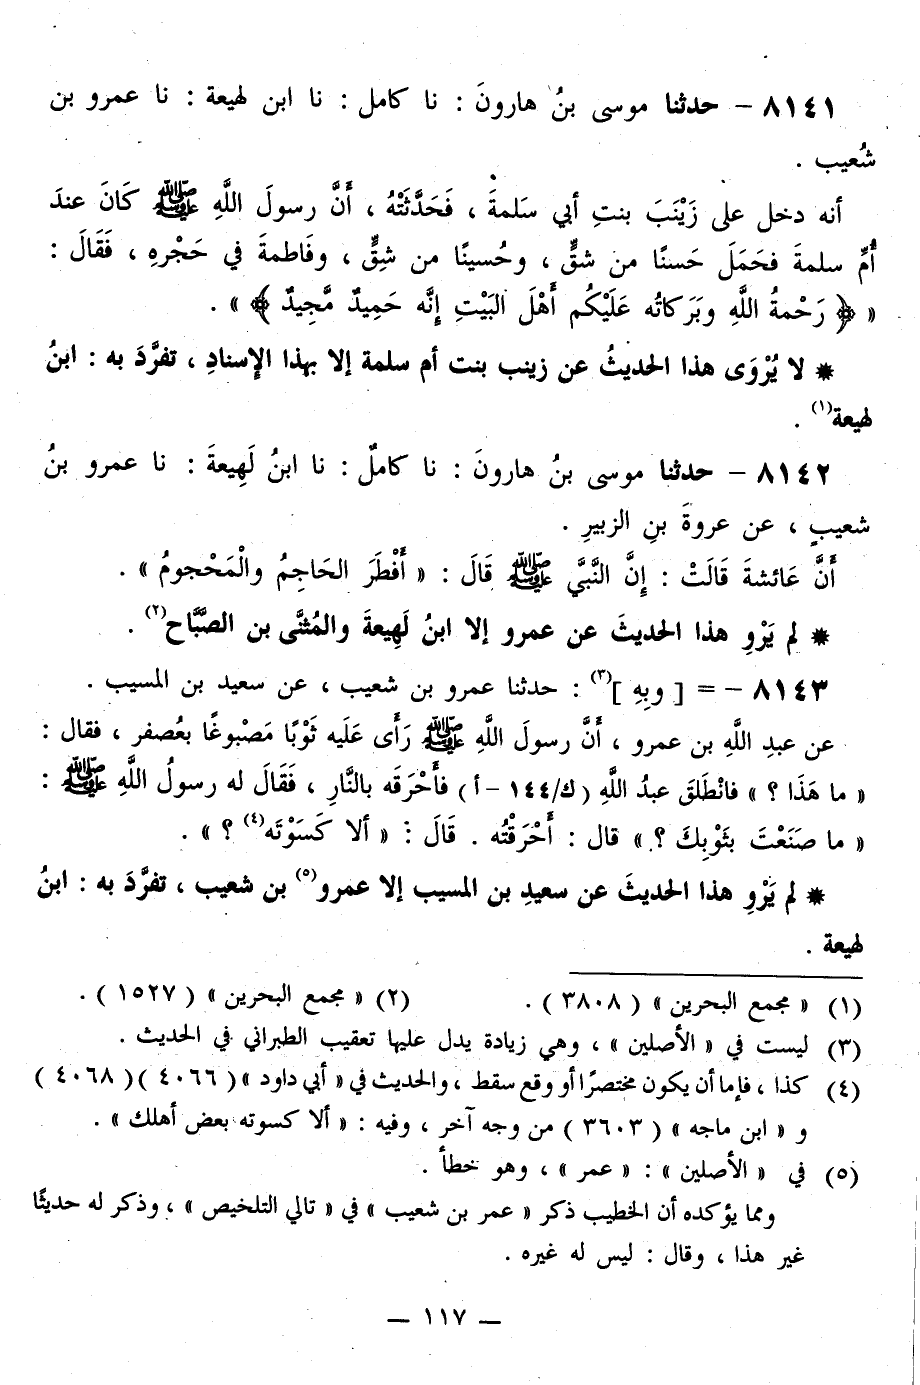 ٨١٤١ - حدثنا موسى بنُ هارونَ : نا كامل : نا ابن لهيعة : نا عمرو بن
شُعيب .
أنه دخل على زَيْنَبَ بنتِ أبي سَلمةَ ، فَحَدَّثَتْهُ ، أَنَّ رسولَ اللَّهِ ﷺ كَانَ عندَ
أُمِّ سلمةَ فحَمَلَ حَسنًا من شقٍّ ، وحُسينًا من شِقٍّ ، وفَاطمةَ في حَجْرهِ ، فَقَالَ :
« ﴿ رَحْمةُ اللَّهِ وبَرَكاتُه عَلَيْكُم أَهْلَ البَيْتِ إِنَّه حَمِيدٌ مَّجِيدٌ ﴾ » .
* لا يُرْوَى هذا الحديثُ عن زينب بنت أم سلمة إلا بهذا الإسنادِ ، تفرَّدَ به : ابنُ
لهيعة(١) .
٨١٤٢ - حدثنا موسى بنُ هارونَ : نا كاملٌ : نا ابنُ لَهِيعةَ : نا عمرو بنُ
شعيبٍ ، عن عروةَ بنِ الزبيرِ .
أَنَّ عَائشةَ قَالَتْ : إِنَّ النَّبيَّ ﷺ قَالَ : « أَفْطَرَ الحَاجِمُ والْمَحْجومُ » .
* لم يَرْوِ هذا الحديثَ عن عمرو إلا ابنُ لَهِيعةَ والمُثنَّى بن الصَّبَّاح(٢) .
٨١٤٣ - = [ وبِهِ ](٣) : حدثنا عمرو بن شعيب ، عن سعيد بن المسيب .
عن عبدِ اللَّهِ بن عمرو ، أَنَّ رسولَ اللَّهِ ﷺ رَأَى عَلَيه ثَوْبًا مَصْبوغًا بعُصفر ، فقال :
« ما هَذَا ؟ » فانْطَلقَ عبدُ اللَّهِ (ك/١٤٤ - أ) فأَحْرَقَه بالنَّارِ ، فَقَالَ له رسولُ اللَّهِ ﷺ :
« ما صَنَعْتَ بثَوْبِكَ ؟ » قال : أَحْرَقْتُه . قَالَ : « ألا كَسَوْتَه(٤) ؟ » .
* لم يَرْوِ هذا الحديثَ عن سعيدِ بن المسيب إلا عمرو(٥) بن شعيب ، تفرَّدَ به : ابنُ
لهيعة .
(١) « مجمع البحرين » ( ٣٨٠٨ ) . (٢) « مجمع البحرين » ( ١٥٢٧ ) .
(٣) ليست في « الأصلين » ، وهي زيادة يدل عليها تعقيب الطبراني في الحديث .
(٤) كذا ، فإما أن يكون مختصرًا أو وقع سقط ، والحديث في « أبي داود » ( ٤٠٦٦ ) ( ٤٠٦٨ )
و « ابن ماجه » ( ٣٦٠٣ ) من وجه آخر ، وفيه : « ألا كسوته بعض أهلك » .
(٥) في « الأصلين » : « عمر » ، وهو خطأ .
ومما يؤكده أن الخطيب ذكر « عمر بن شعيب » في « تالي التلخيص » ، وذكر له حديثًا
غير هذا ، وقال : ليس له غيره .
— ١١٧ —